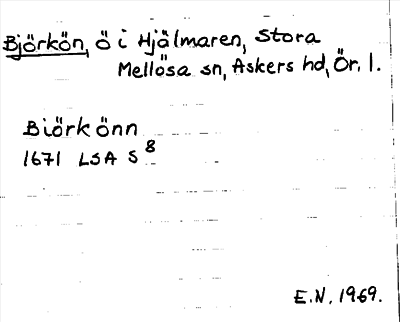 Björkön, ö i Hjälmaren, Stora
Mellösa sn, Askers hd, Ör. l.
Biörkönn
1671 LSA S 8
E.N. 1969.